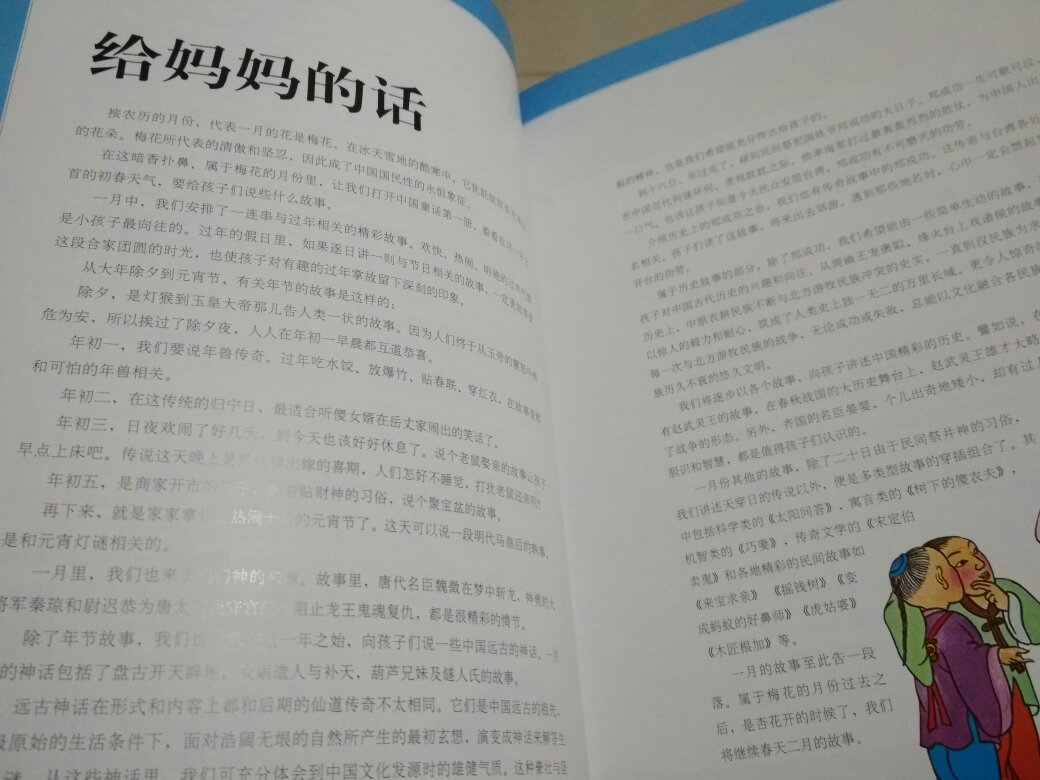 给妈妈的话
按农历的月份，代表一月的花是梅花。在冰天雪地的酷寒中，它
的花朵。梅花所代表的清傲和坚忍，因此成了中国国民性的永恒象征。
在这暗香扑鼻、属于梅花的月份里，让我们打开中国童话第一册，看看在这
首的初春天气，要给孩子们说些什么故事。
一月中，我们安排了一连串与过年相关的精彩故事。欢快、热闹、明艳的过年
是小孩子最向往的。过年的假日里，如果逐日讲一则与节日相关的故事，一定更能
这段合家团圆的时光，也使孩子对有趣的过年掌故留下深刻的印象。
从大年除夕到元宵节，有关年节的故事是这样的：
除夕，是灯猴到玉皇大帝那儿告人类一状的故事。因为人们终于从玉帝的
危为安，所以挨过了除夕夜，人人在年初一早晨都互道恭喜。
年初一，我们要说年兽传奇。过年吃水饺、放爆竹、贴春联、穿红衣，在故事里都
和可怕的年兽相关。
年初二，在这传统的归宁日，最适合听傻女婿在岳丈家闹出的笑话了。
年初三，日夜欢闹了好几天，到今天也该好好休息了。说个老鼠娶亲的故事让孩子
早点上床吧。传说这天晚上是 出嫁的喜期，人们怎好不睡觉，打扰老鼠迎亲呢？
年初五，是商家开市的 贴财神的习俗，说个聚宝盆的故事。
再下来，就是家家掌 热闹十 的元宵节了。这天可以说一段明代马皇后的故事，
是和元宵灯谜相关的。
一月里，我们也来 门神的 。故事里，唐代名臣魏徵在梦中斩龙，神勇的大
将军秦琼和尉迟恭为唐太 守宫 阻止龙王鬼魂复仇，都是很精彩的情节。
除了年节故事，我们也 这一年之始，向孩子们说一些中国远古的神话。一月
的神话包括了盘古开天辟地、女娲造人与补天、葫芦兄妹及燧人氏的故事。
远古神话在形式和内容上都和后期的仙道传奇不太相同。它们是中国远古的祖先，
极原始的生活条件下，面对浩阔无垠的自然所产生的最初玄想、演变成神话来解答生
谜。从这些神话里，我们可充分体会到中国文化发源时的雄健气质。这种豪壮与坚
毅的精神，也是我们希望能充分传达给孩子的。
到十六日，年过完了，碰到民间祭祀国姓爷郑成功的大日子。郑成功一生可歌可泣，
在中国近代列强环伺、虎视眈眈之际，他率海军打过最轰轰烈烈的胜仗，为中国人出
一口气。也该让孩子知道今天民众安居台湾，郑成功有不可磨灭的功劳。
介绍历史上的郑成功之余，我们也有传奇故事中的郑成功。这传奇与台湾各处
名相关。孩子们读了这故事，将来出去郊游，遇到那些地名时，心中一定会想起
开台的功劳。
属于历史故事的部分，除了郑成功，我们希望能由一些简单生动的故事，
孩子对中国古代历史的兴趣和向往。从周幽王宠褒姒、烽火台上戏诸侯的故事
历史上，中原农耕民族不断与北方游牧民族冲突的史实，一直到汉民族为求
以惊人的毅力和耐心，筑成了人类史上独一无二的万里长城。更令人惊奇的
每一次与北方游牧民族的战争，无论成功或失败，总能以文化融合各民族
族历久不衰的悠久文明。
我们将逐步以各个故事，向孩子讲述中国精彩的历史。譬如说，在
有赵武灵王的故事，在春秋战国的大历史舞台上，赵武灵王雄才大略
了战争的形态。另外，齐国的名臣晏婴，个儿出奇地矮小，却有过人
胆识和智慧，都是值得孩子们认识的。
一月份其他的故事，除了二十日由于民间祭井神的习俗，
我们讲述天穿日的传说以外，便是多类型故事的穿插组合了。其
中包括科学类的《太阳问答》，寓言类的《树下的傻农夫》，
机智类的《巧妻》，传奇文学的《宋定伯
卖鬼》和各地精彩的民间故事如
《来宝求亲》《摇钱树》《变
成蚂蚁的好鼻师》《虎姑婆》
《木匠根加》等。
一月的故事至此告一段
落。属于梅花的月份过去之
后，是杏花开的时候了，我们
将继续春天二月的故事。